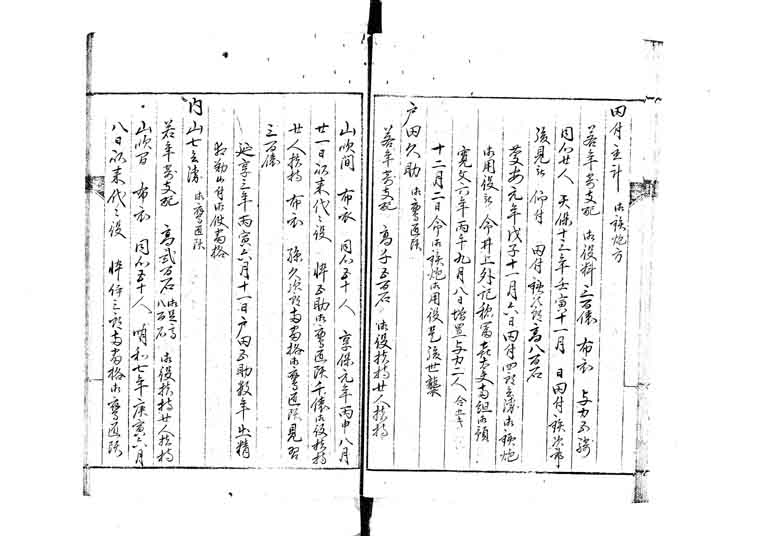 田付主計　御鉄炮方
若年寄支配　御役料三百俵　布衣　与力五騎
同心廿人　天保十三年壬寅十一月　日田付鉄次郎
後見被　仰付　田付鉄次郎高八百石
慶安元年戊子十一月六日田付四郎兵衛御鉄炮
御用役被　命井上外記稲富喜太夫両組御預
寛文六年丙午九月八日増置与力二人
十二月二日命御鉄炮御用役是後世襲
戸田久助　御鷹匠頭
若年寄支配　高　五百石　御役扶持廿人扶持
山吹間　布衣　同心五十人　享保元年丙申八月
廿一日以来代々役　悴五助御鷹匠頭千俵御役扶持
廿人扶持　布衣　孫久次郎両番格御鷹匠頭見習
三百俵
延享三年丙寅六月十一日戸田五助数年出精
相勤付御使番格
内山七兵衛　御鷹匠頭
若年寄支配　高弐百石　御足高八百石　御役扶持廿人扶持
山吹間　布衣　同心五十人　明和七年庚寅六月
八日以来代々役　悴伝三郎両番格御鷹匠頭